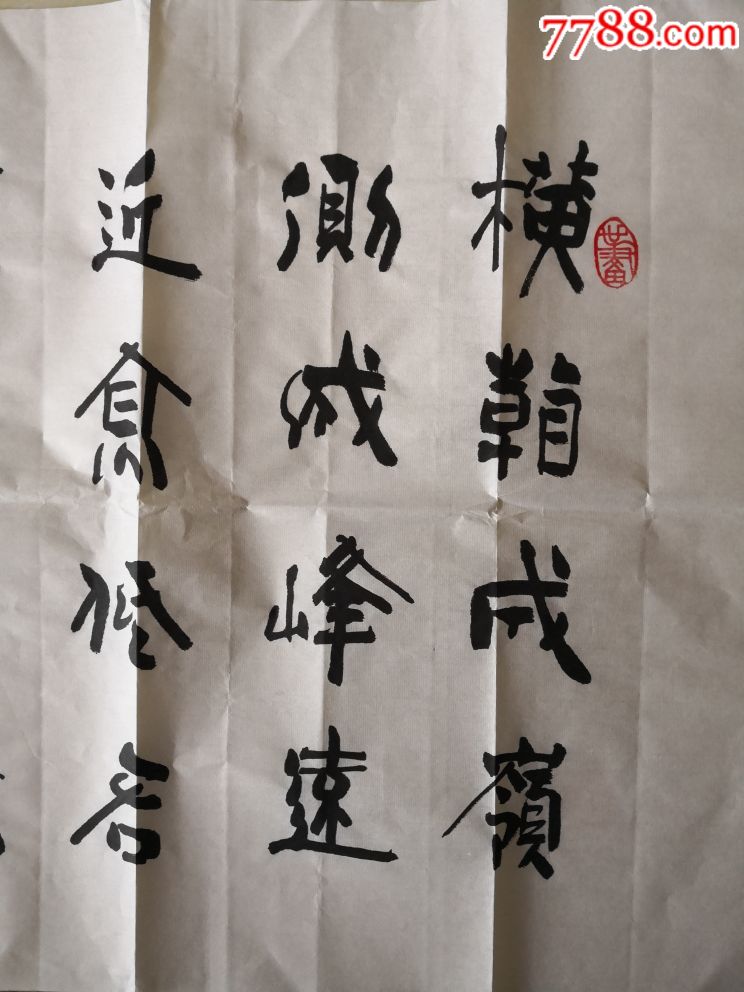 7788.com
横看成嶺
側成峰遠
近高低各